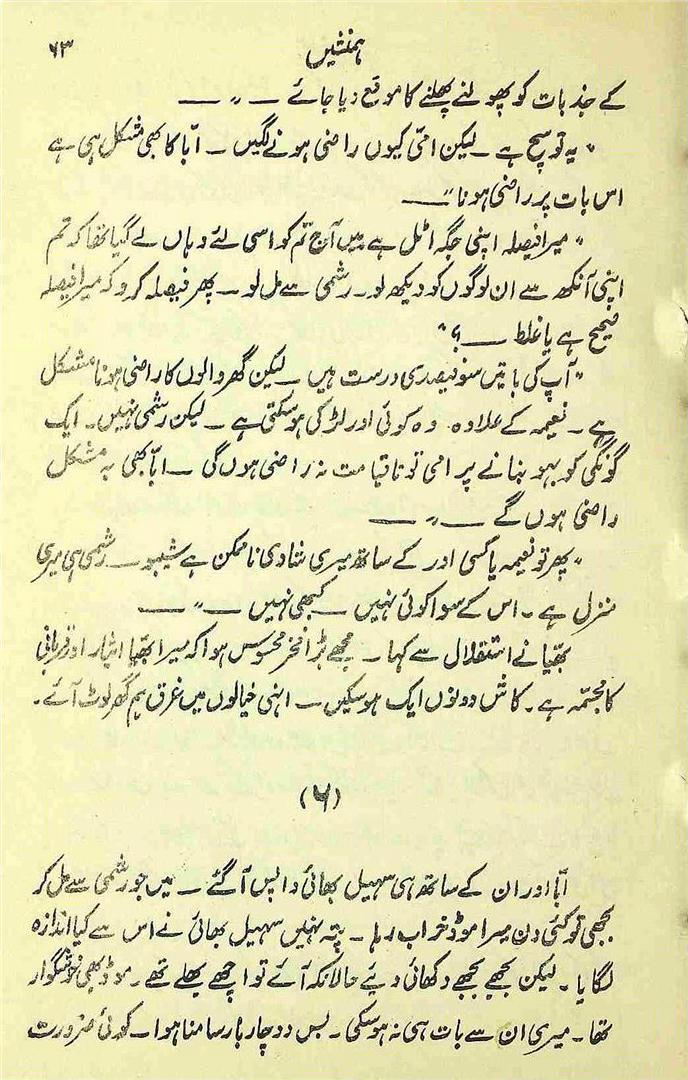 ہمنشیں ۶۳
کے جذبات کو پھولنے پھلنے کا موقع دیا جائے — ״ —
״ یہ تو سچ ہے — لیکن امّی کیوں راضی ہونے لگیں — ابّا کا بھی مشکل ہی ہے
اس بات پر راضی ہونا״ —
״ میرا فیصلہ اپنی جگہ اٹل ہے میں آج تم کو اسی لئے وہاں لے گیا تھا کہ تم
اپنی آنکھ سے ان لوگوں کو دیکھ لو۔ رشمی سے مل لو — پھر فیصلہ کرو کہ میرا فیصلہ
صحیح ہے یا غلط — ؟״
״ آپ کی باتیں سو فیصدی درست ہیں — لیکن گھر والوں کا راضی ہونا مشکل
ہے — نعیمہ کے علاوہ وہ کوئی اور لڑکی ہو سکتی ہے — لیکن رشمی نہیں۔ ایک
گونگی کو بہو بنانے پر امی تو تا قیامت نہ راضی ہوں گی — ابّا بھی بہ مشکل
راضی ہوں گے — ״ —
״ پھر تو نعیمہ یا کسی اور کے ساتھ میری شادی ناممکن ہے شیبو — رشمی ہی میری
منزل ہے۔ اس کے سوا کوئی نہیں — کبھی نہیں — ״ —
بھیا نے استقلال سے کہا — مجھے بڑا فخر محسوس ہوا کہ میرا بھیا ایثار اور قربانی
کا مجسّمہ ہے۔ کاش دونوں ایک ہو سکیں — انہی خیالوں میں غرق ہم گھر لوٹ آئے۔
(۶)
ابّا اور ان کے ساتھ ہی سہیل بھائی واپس آ گئے — میں جو رشمی سے مل کر
بجھی تو کئی دن میرا موڈ خراب رہا — پتہ نہیں سہیل بھائی نے اس سے کیا اندازہ
لگایا۔ لیکن بجھے بجھے دکھائی دیئے حالانکہ آئے تو اچھے بھلے تھے — موڈ بھی خوشگوار
تھا۔ میری ان سے بات ہی نہ ہو سکی۔ بس دو چار بار سامنا ہوا — کوئی ضرورت